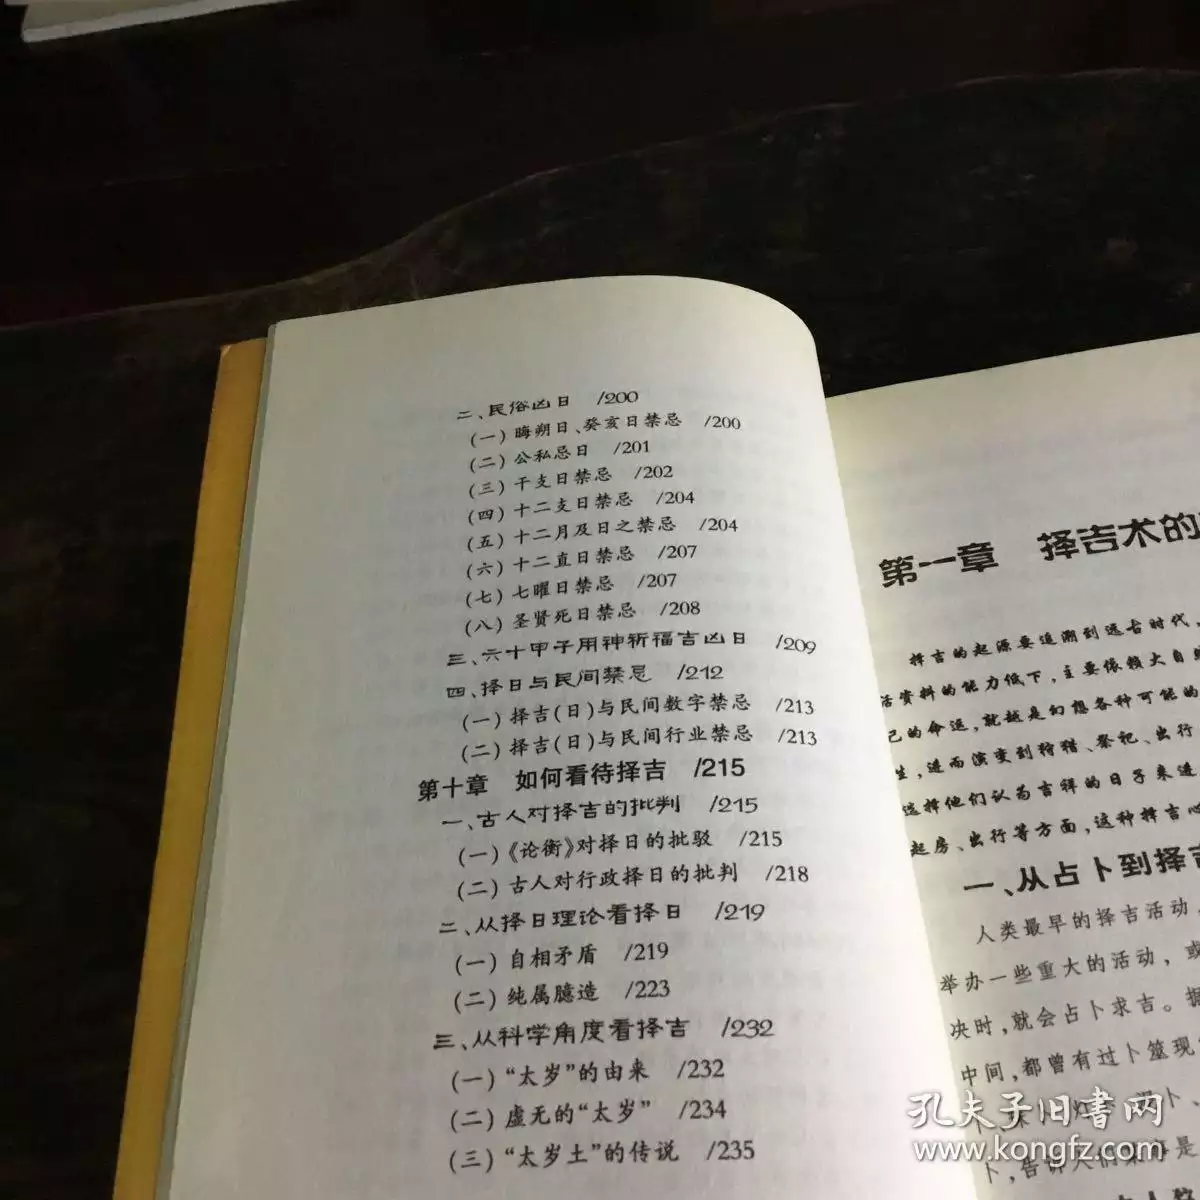 二、民俗凶日 /200
(一)晦朔日、癸亥日禁忌 /200
(二)公私忌日 /201
(三)干支日禁忌 /202
(四)十二支日禁忌 /204
(五)十二月及日之禁忌 /204
(六)十二直日禁忌 /207
(七)七曜日禁忌 /207
(八)圣贤死日禁忌 /208
三、六十甲子用神祈福吉凶日 /209
四、择日与民间禁忌 /212
(一)择吉(日)与民间数字禁忌 /213
(二)择吉(日)与民间行业禁忌 /213
第十章 如何看待择吉 /215
一、古人对择吉的批判 /215
(一)《论衡》对择日的批驳 /215
(二)古人对行政择日的批判 /218
二、从择日理论看择日 /219
(一)自相矛盾 /219
(二)纯属臆造 /223
三、从科学角度看择吉 /232
(一)“太岁”的由来 /232
(二)虚无的“太岁” /234
(三)“太岁土”的传说 /235
第一章 择吉术的
择吉的起源要追溯到远古时代,
活资料的能力低下,主要依赖大自
己的命运,就越是幻想各种可能的
生,进而演变到狩猎、祭祀、出行
选择他们认为吉祥的日子来进
起房、出行等方面,这种择吉心
一、从占卜到择吉
人类最早的择吉活动,
举办一些重大的活动,或
决时,就会占卜求吉。据
中间,都曾有过卜筮现
卜,告诉人们某事是
孔夫子旧书网
www.kongfz.com